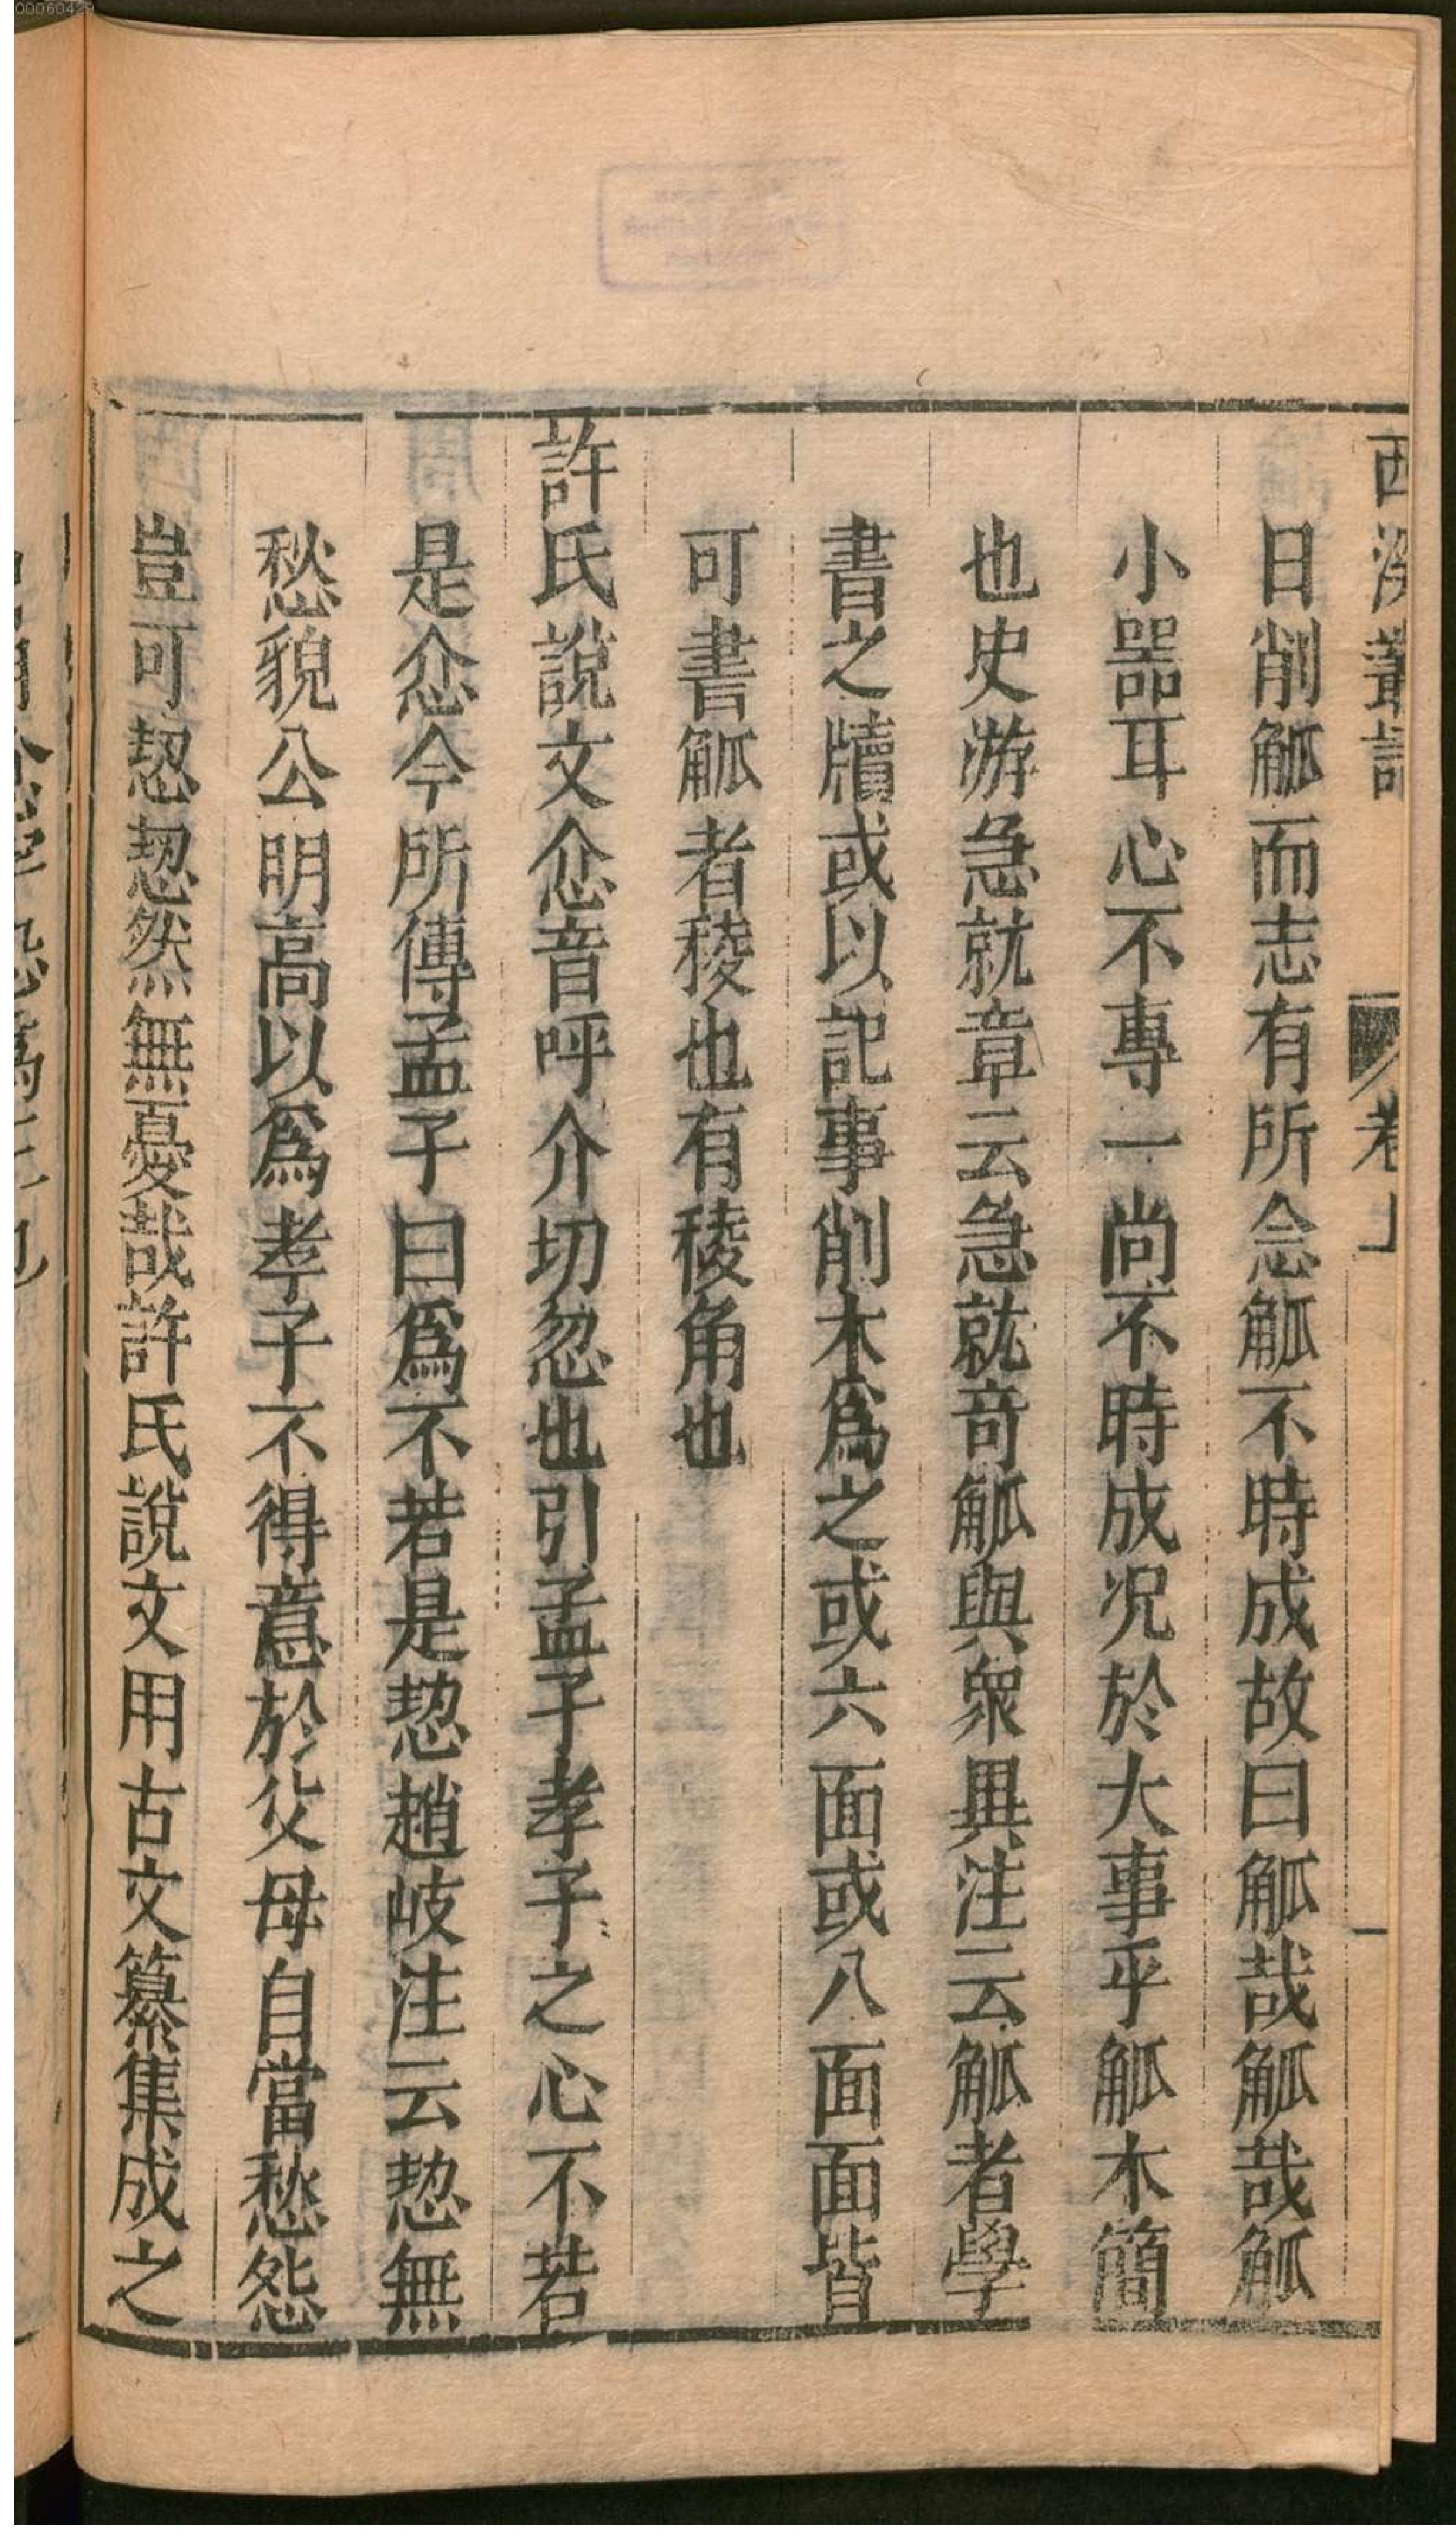 西溪叢語 卷上
日削觚而志有所念觚不時成故曰觚哉觚哉觚
小器耳心不專一尚不時成况於大事乎觚木簡
也史游急就章云急就奇觚與衆異注云觚者學
書之牘或以記事削木爲之或六面或八面面皆
可書觚者稜也有稜角也
許氏說文忿音呼介切忽也引孟子孝子之心不若
是忿今所傳孟子曰爲不若是恝趙岐注云恝無
愁貌公明高以爲孝子不得意於父母自當愁怨
豈可恝恝然無憂哉許氏說文用古文纂集成之